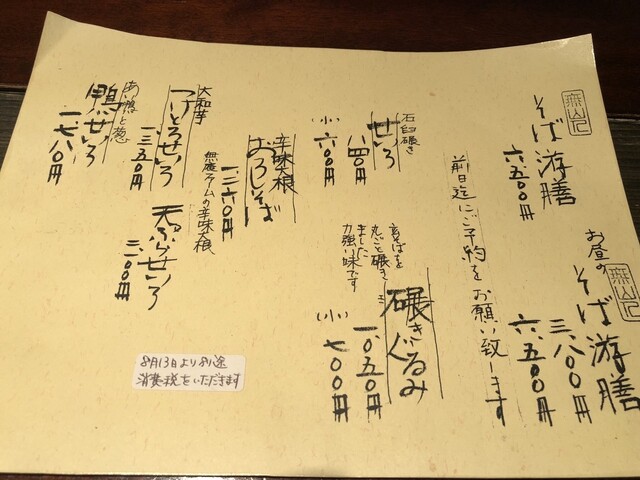 無山心
そば游膳
六、五〇〇円
お昼の
無山心
そば游膳
三、八〇〇円
六、五〇〇円
前日迄にご予約をお願い致します
石臼碾き
せいろ
八四〇円
(小)六〇〇円
玄そばを
丸ごと碾き
ました
力強い味です
碾きぐるみ
一、〇五〇円
(小)七〇〇円
辛味大根
おろしそば
一、二六〇円
無農ファームの辛味大根
大和芋
つけとろせいろ
一、三五〇円
天ぷらせいろ
二、一〇〇円
あい鴨と葱
鴨せいろ
一、七八〇円
8月13日より別途
消費税をいただきます